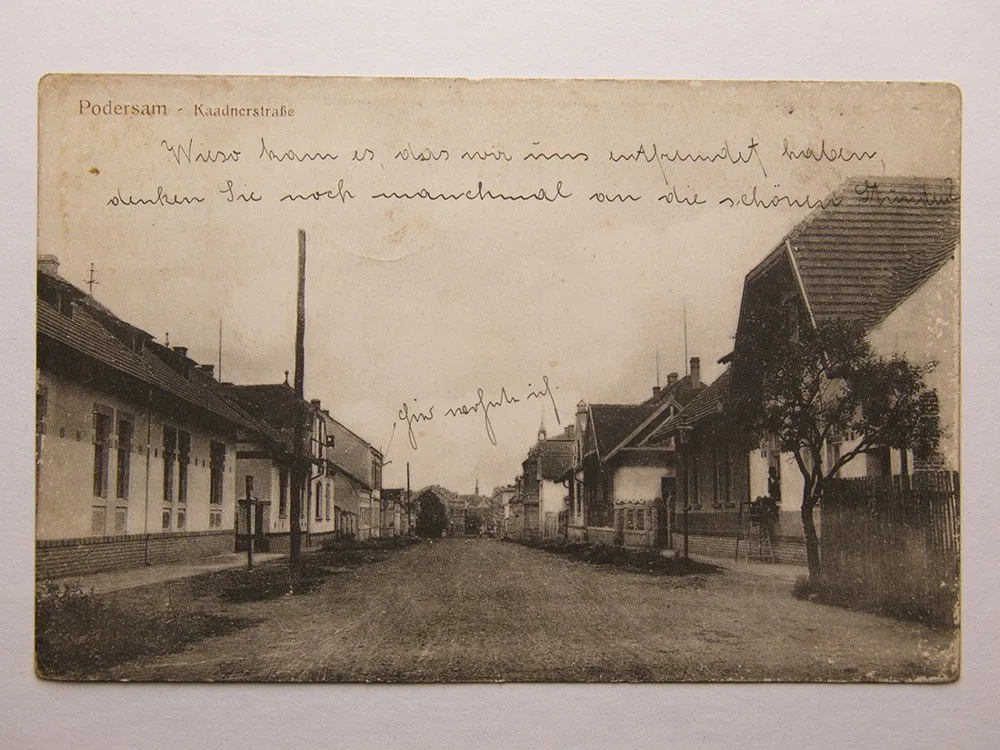 Podersam - Kaadnerstraße
Wieso kam es, das wir uns entfremdet haben,
denken Sie noch manchmal an die schönen
hier wohnte ich.